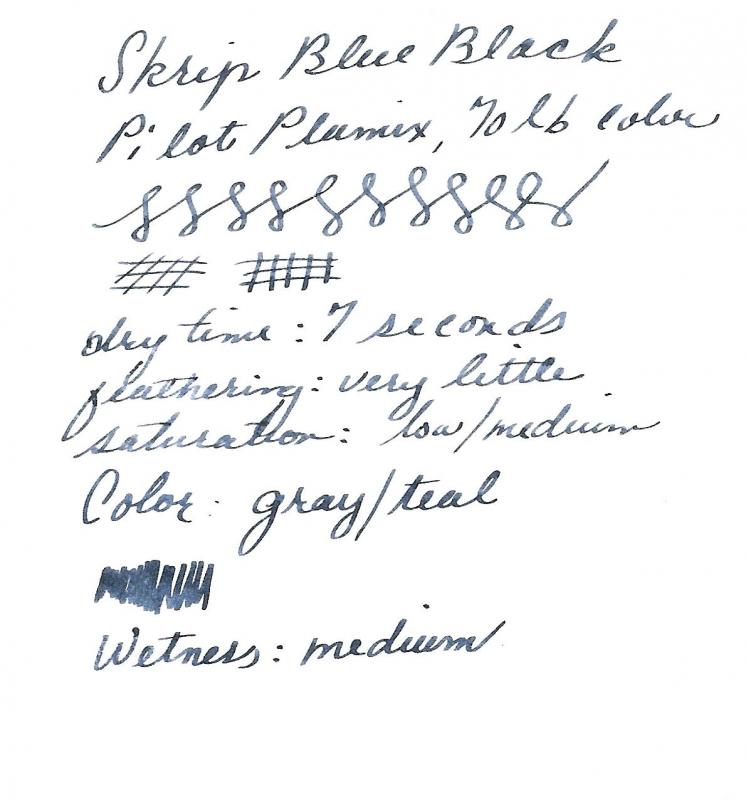 Skrip Blue Black
Pilot Plumix, 70 lb color
dry time: 7 seconds
feathering: very little
saturation: low/medium
Color: gray/teal
Wetness: medium